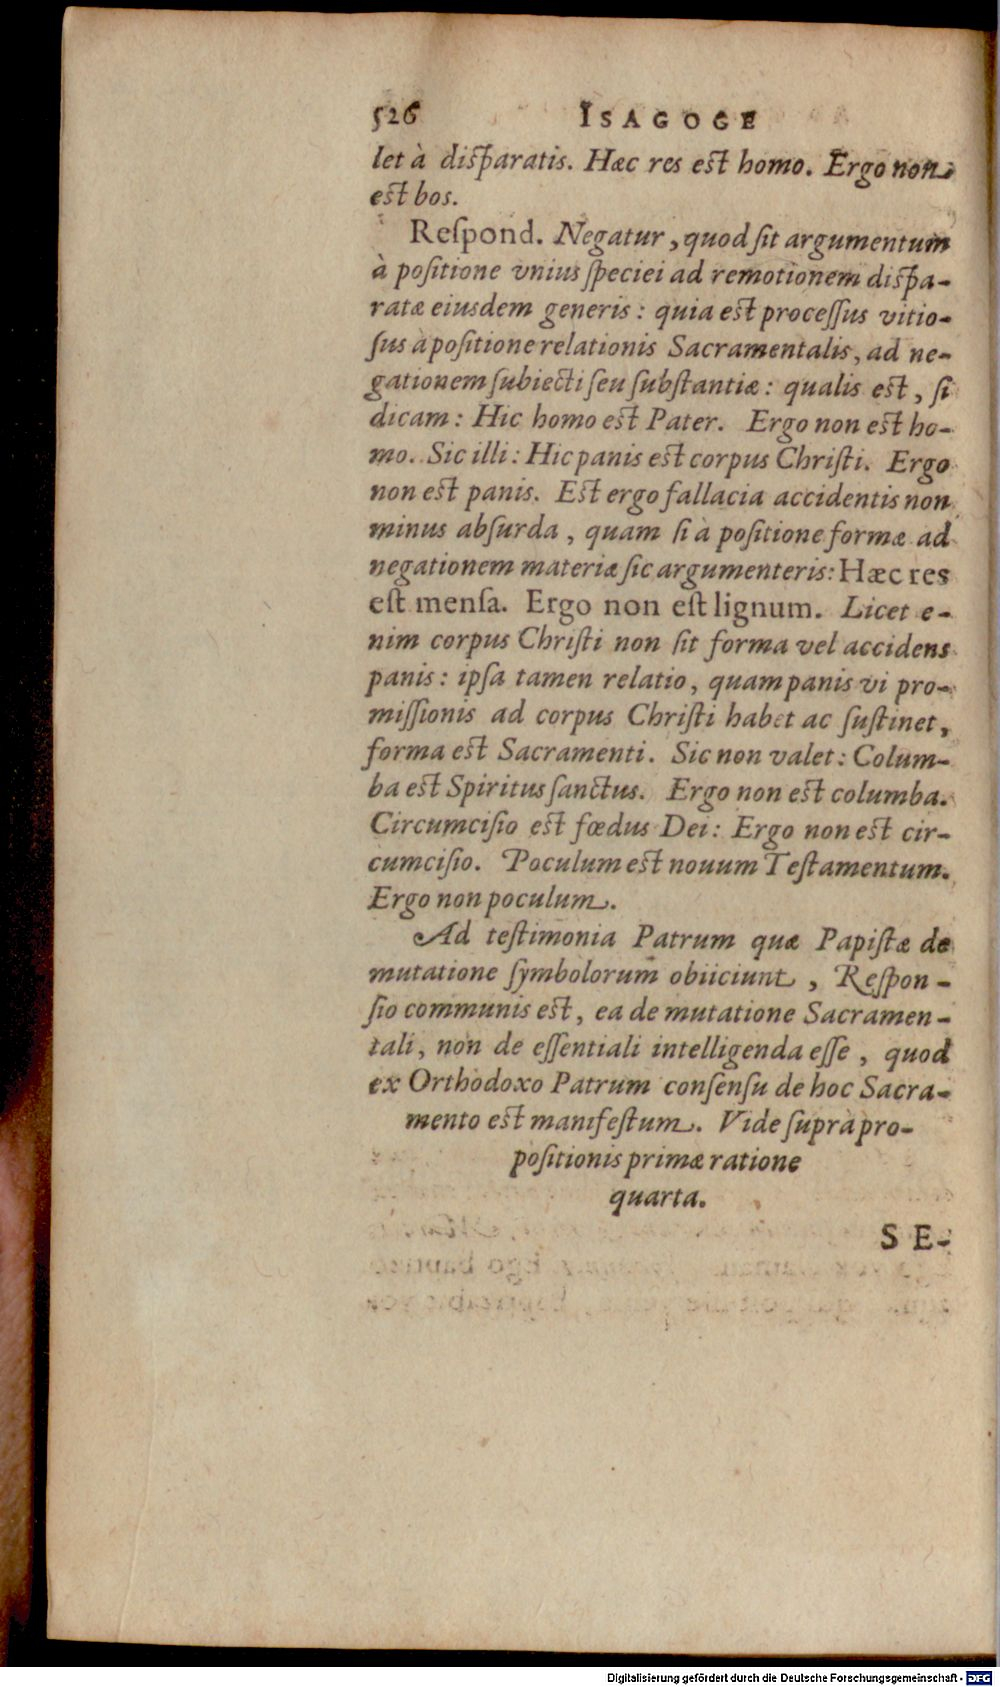 526 ISAGOGE
let à disparatis. Hæc res est homo. Ergo non
est bos.
Reſpond. Negatur, quod ſit argumentum
à poſitione vnius ſpeciei ad remotionem diſpa-
ratæ eiusdem generis: quia est proceſſus vitio-
ſus à poſitione relationis Sacramentalis, ad ne-
gationem ſubiecti ſeu ſubſtantiæ: qualis est, ſi
dicam: Hic homo est Pater. Ergo non est ho-
mo. Sic illi: Hic panis est corpus Chriſti. Ergo
non est panis. Est ergo fallacia accidentis non
minus abſurda, quam ſi à poſitione formæ ad
negationem materiæ ſic argumenteris: Hæc res
eſt menſa. Ergo non eſt lignum. Licet e-
nim corpus Chriſti non ſit forma vel accidens
panis: ipſa tamen relatio, quam panis vi pro-
miſſionis ad corpus Chriſti habet ac ſuſtinet,
forma est Sacramenti. Sic non valet: Colum-
ba est Spiritus ſanctus. Ergo non est columba.
Circumciſio est fœdus Dei: Ergo non est cir-
cumciſio. Poculum est nouum Teſtamentum.
Ergo non poculum.
Ad teſtimonia Patrum quæ Papiſtæ de
mutatione ſymbolorum obiiciunt, Reſpon-
ſio communis est, ea de mutatione Sacramen-
tali, non de eſſentiali intelligenda eſſe, quod
ex Orthodoxo Patrum conſenſu de hoc Sacra-
mento est manifeſtum. Vide ſuprà pro-
poſitionis primæ ratione
quarta.
SE-
Digitalisierung gefördert durch die Deutsche Forschungsgemeinschaft - DFG